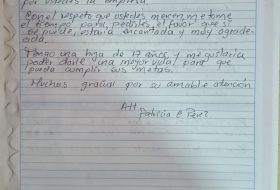 por ustedes la empresa.
Con el respeto que ustedes merecen, me tome
el tiempo para pedirles el favor que si
se puede, estaria encantada y muy agrade-
cida.
Tengo una hija de 17 años y me gustaria
poder darle una mejor vida para que
pueda cumplir sus metas.
Muchas gracias por su amable atención
Att
Patricia e Perez